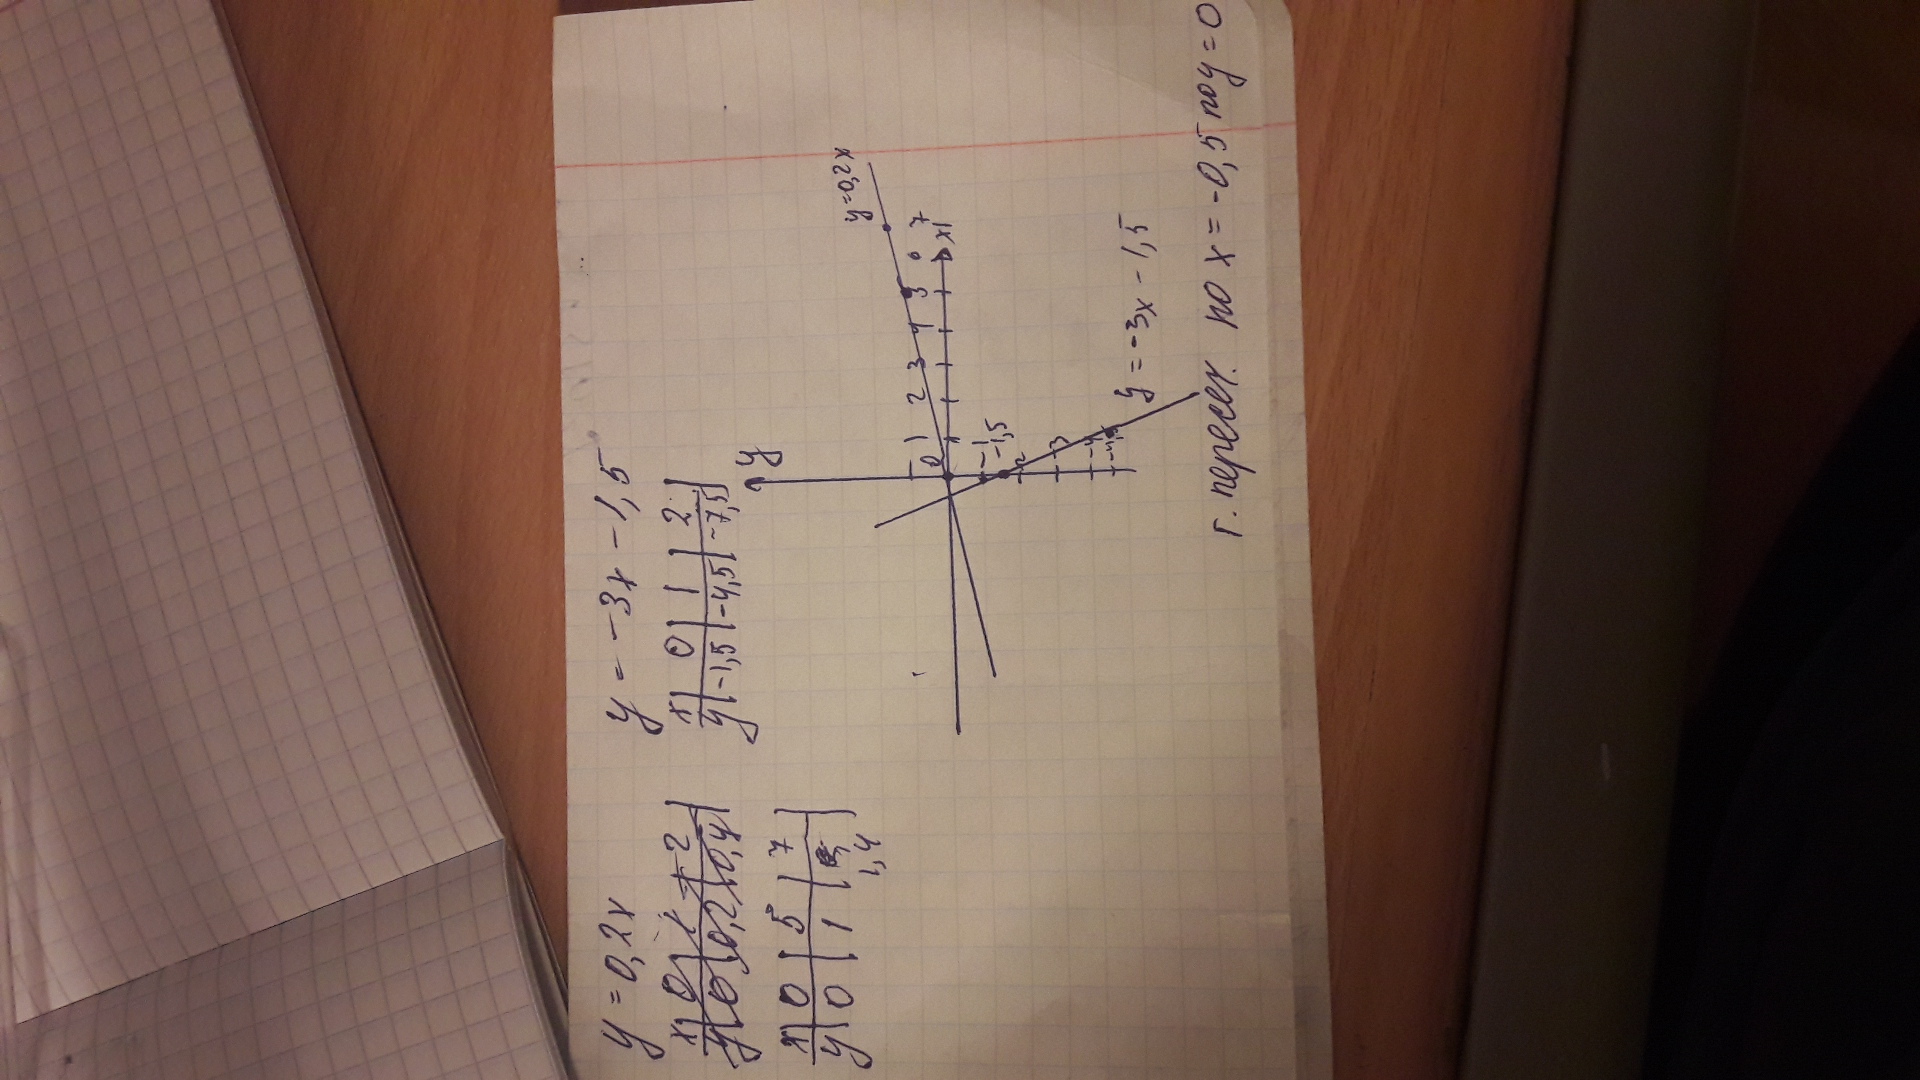 y = 0,2x
x | 0 | 1 | 2 |
y | 0 | 0,2 | 0,4 |
x | 0 | 5 | 7 |
y | 0 | 1 |
1,4
y = -3x - 1,5
x | 0 | 1 | 2 |
y | -1,5 | -4,5 | -7,5 |
y
y=0,2x
0 1 2 3 4 5 6 7
x
-1
-1,5
-2
-3
-4
-4,5
y = -3x - 1,5
т. пересек. по x = -0,5 по y = 0